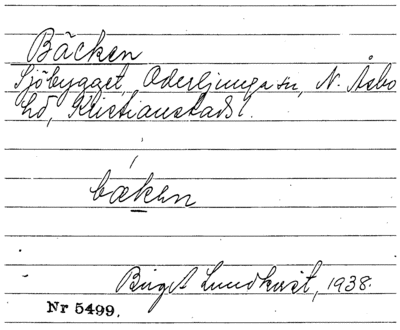 Bäcken
Sjöbygget, Oderljunga sn, N. Åsbo
hd, Kristianstads l.
bæken
Birget Lundkvist, 1938.
Nr 5499.